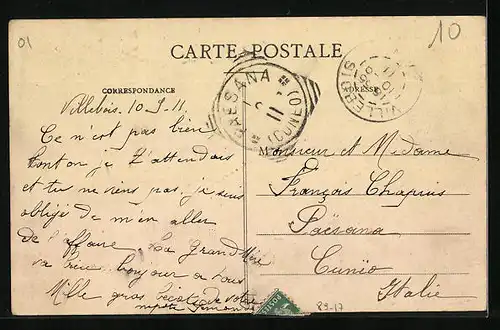 01
10
CARTE POSTALE
CORRESPONDANCE
ADRESSE
PAESANA (CUNEO)
11
VILLEBOIS
Villebois 10-9-11
Ce n'est pas bien
je t'attendais
et tu ne viens pas, je suis
obligé de m'en aller
de l'affaire. La Grand Mère
va bien bonjour a tous
Mille gros de votre
Monsieur et Madame
François Chapuis
Païsana
Cunéo
Italie
R9-17